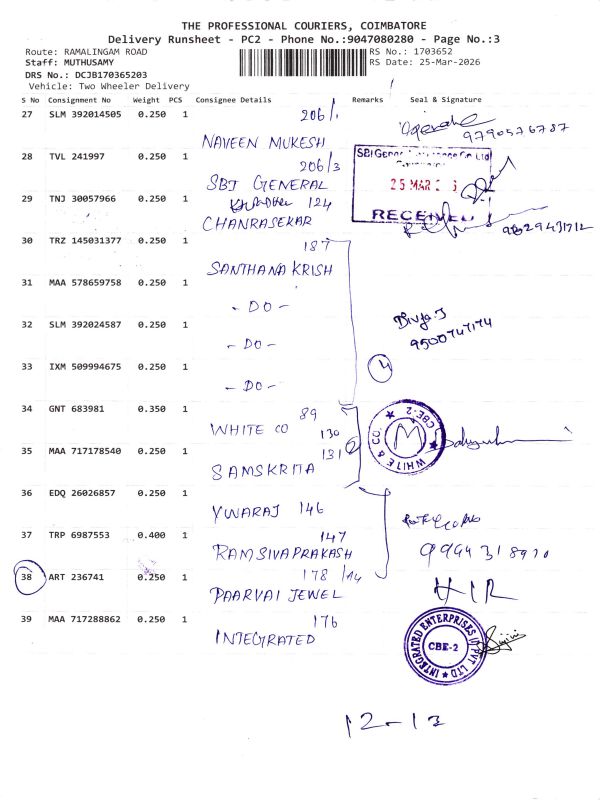 THE PROFESSIONAL COURIERS, COIMBATORE
Delivery Runsheet - PC2 - Phone No.:9047080280 - Page No.:3
Route: RAMALINGAM ROAD
RS No.: 1703652
Staff: MUTHUSAMY
RS Date: 25-Mar-2026
DRS No.: DCJB170365203
Vehicle: Two Wheeler Delivery
S No Consignment No Weight PCS Consignee Details Remarks Seal & Signature
27 SLM 392014505 0.250 1 206/1
NAVEEN MUKESH 9790576787
28 TVL 241997 0.250 1 206/3
SBI GENERAL
SBI General
25 MAR
RECEIVED
29 TNJ 30057966 0.250 1 124
CHANRASEKAR 9629431712
30 TRZ 145031377 0.250 1 187
SANTHANA KRISH
31 MAA 578659758 0.250 1
- DO -
Divya.J
9500747174
32 SLM 392024587 0.250 1
- DO -
33 IXM 509994675 0.250 1
- DO -
4
34 GNT 683981 0.350 1 89
WHITE CO 130
WHITE & CO. CBE-2
M
35 MAA 717178540 0.250 1 131 2
SAMSKRITA
36 EDQ 26026857 0.250 1
YWARAJ 146
37 TRP 6987553 0.400 1 147
RAMSIVAPRAKASH 9944318970
38 ART 236741 0.250 1 178/14
PAARVAI JEWEL
39 MAA 717288862 0.250 1 176
INTEGRATED
INTEGRATED ENTERPRISES (I) PVT LTD
CBE-2
12-13